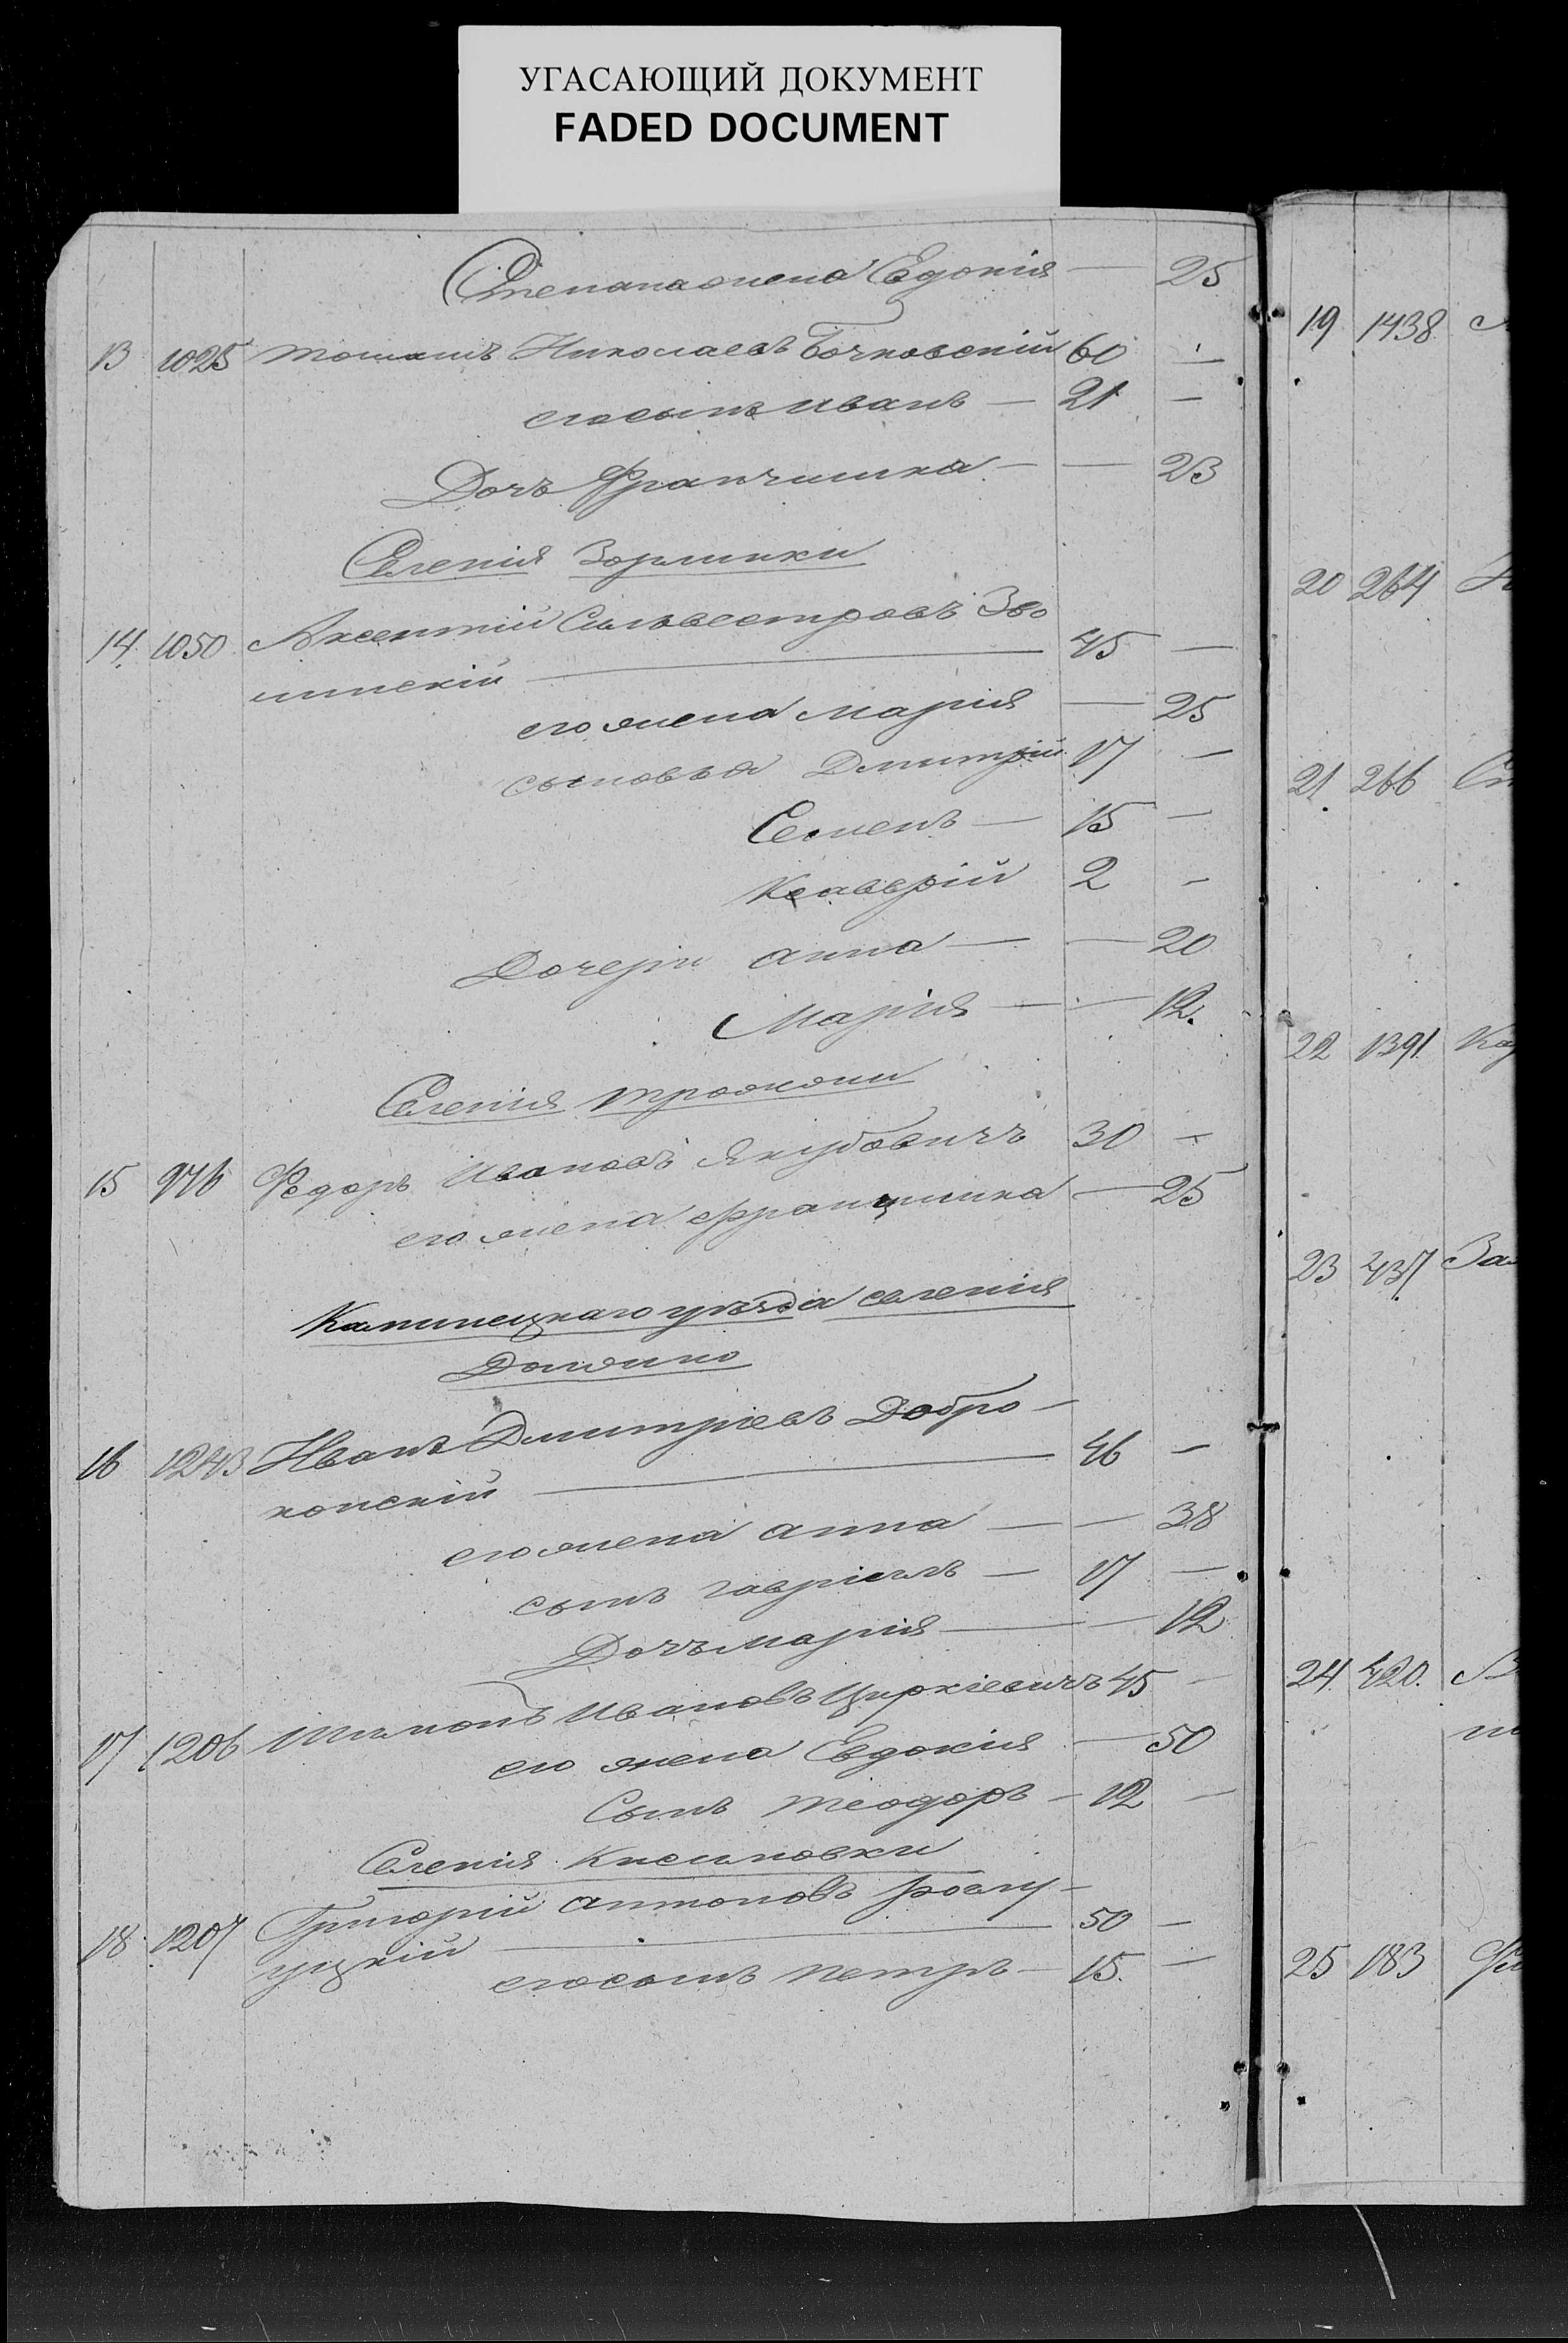 УГАСАЮЩИЙ ДОКУМЕНТ
FADED DOCUMENT
Степана жена Едокія — 25
13 1025 Томашъ Николаевъ Бочковскій 60 —
его сынъ Иванъ — 21 —
Дочь Францишка — — 23
Селенія Зорлинки
14. 1050 Аксентій Сильвестровъ Зво
линскій — 45 —
его жена Марія — 25
сыновья Дмитрій 17 —
Семенъ — 15 —
Ксаверій 2 —
Дочери Анна — — 20
Марія — — 12.
Селенія
15 976 Федоръ Ивановъ Якубовичъ 30 —
его жена Францишка — 25
уѣзда селенія
16 1243 Иванъ Дмитріевъ Добро-
конскій — 46 —
его жена Анна — — 38
сынъ Гавріилъ — 17 —
Дочь Марія — — 12
17 1206 Ивановъ Цыркіевичъ 45 —
его жена Евдокія — 50
Сынъ Теодоръ — 12 —
Селенія
18. 1207 Григорій Антоновъ
— 50 —
его сынъ Петръ — 15. —
19 1438
20 264
21. 266
22 1391
23 437 За
24. 420.
25 183